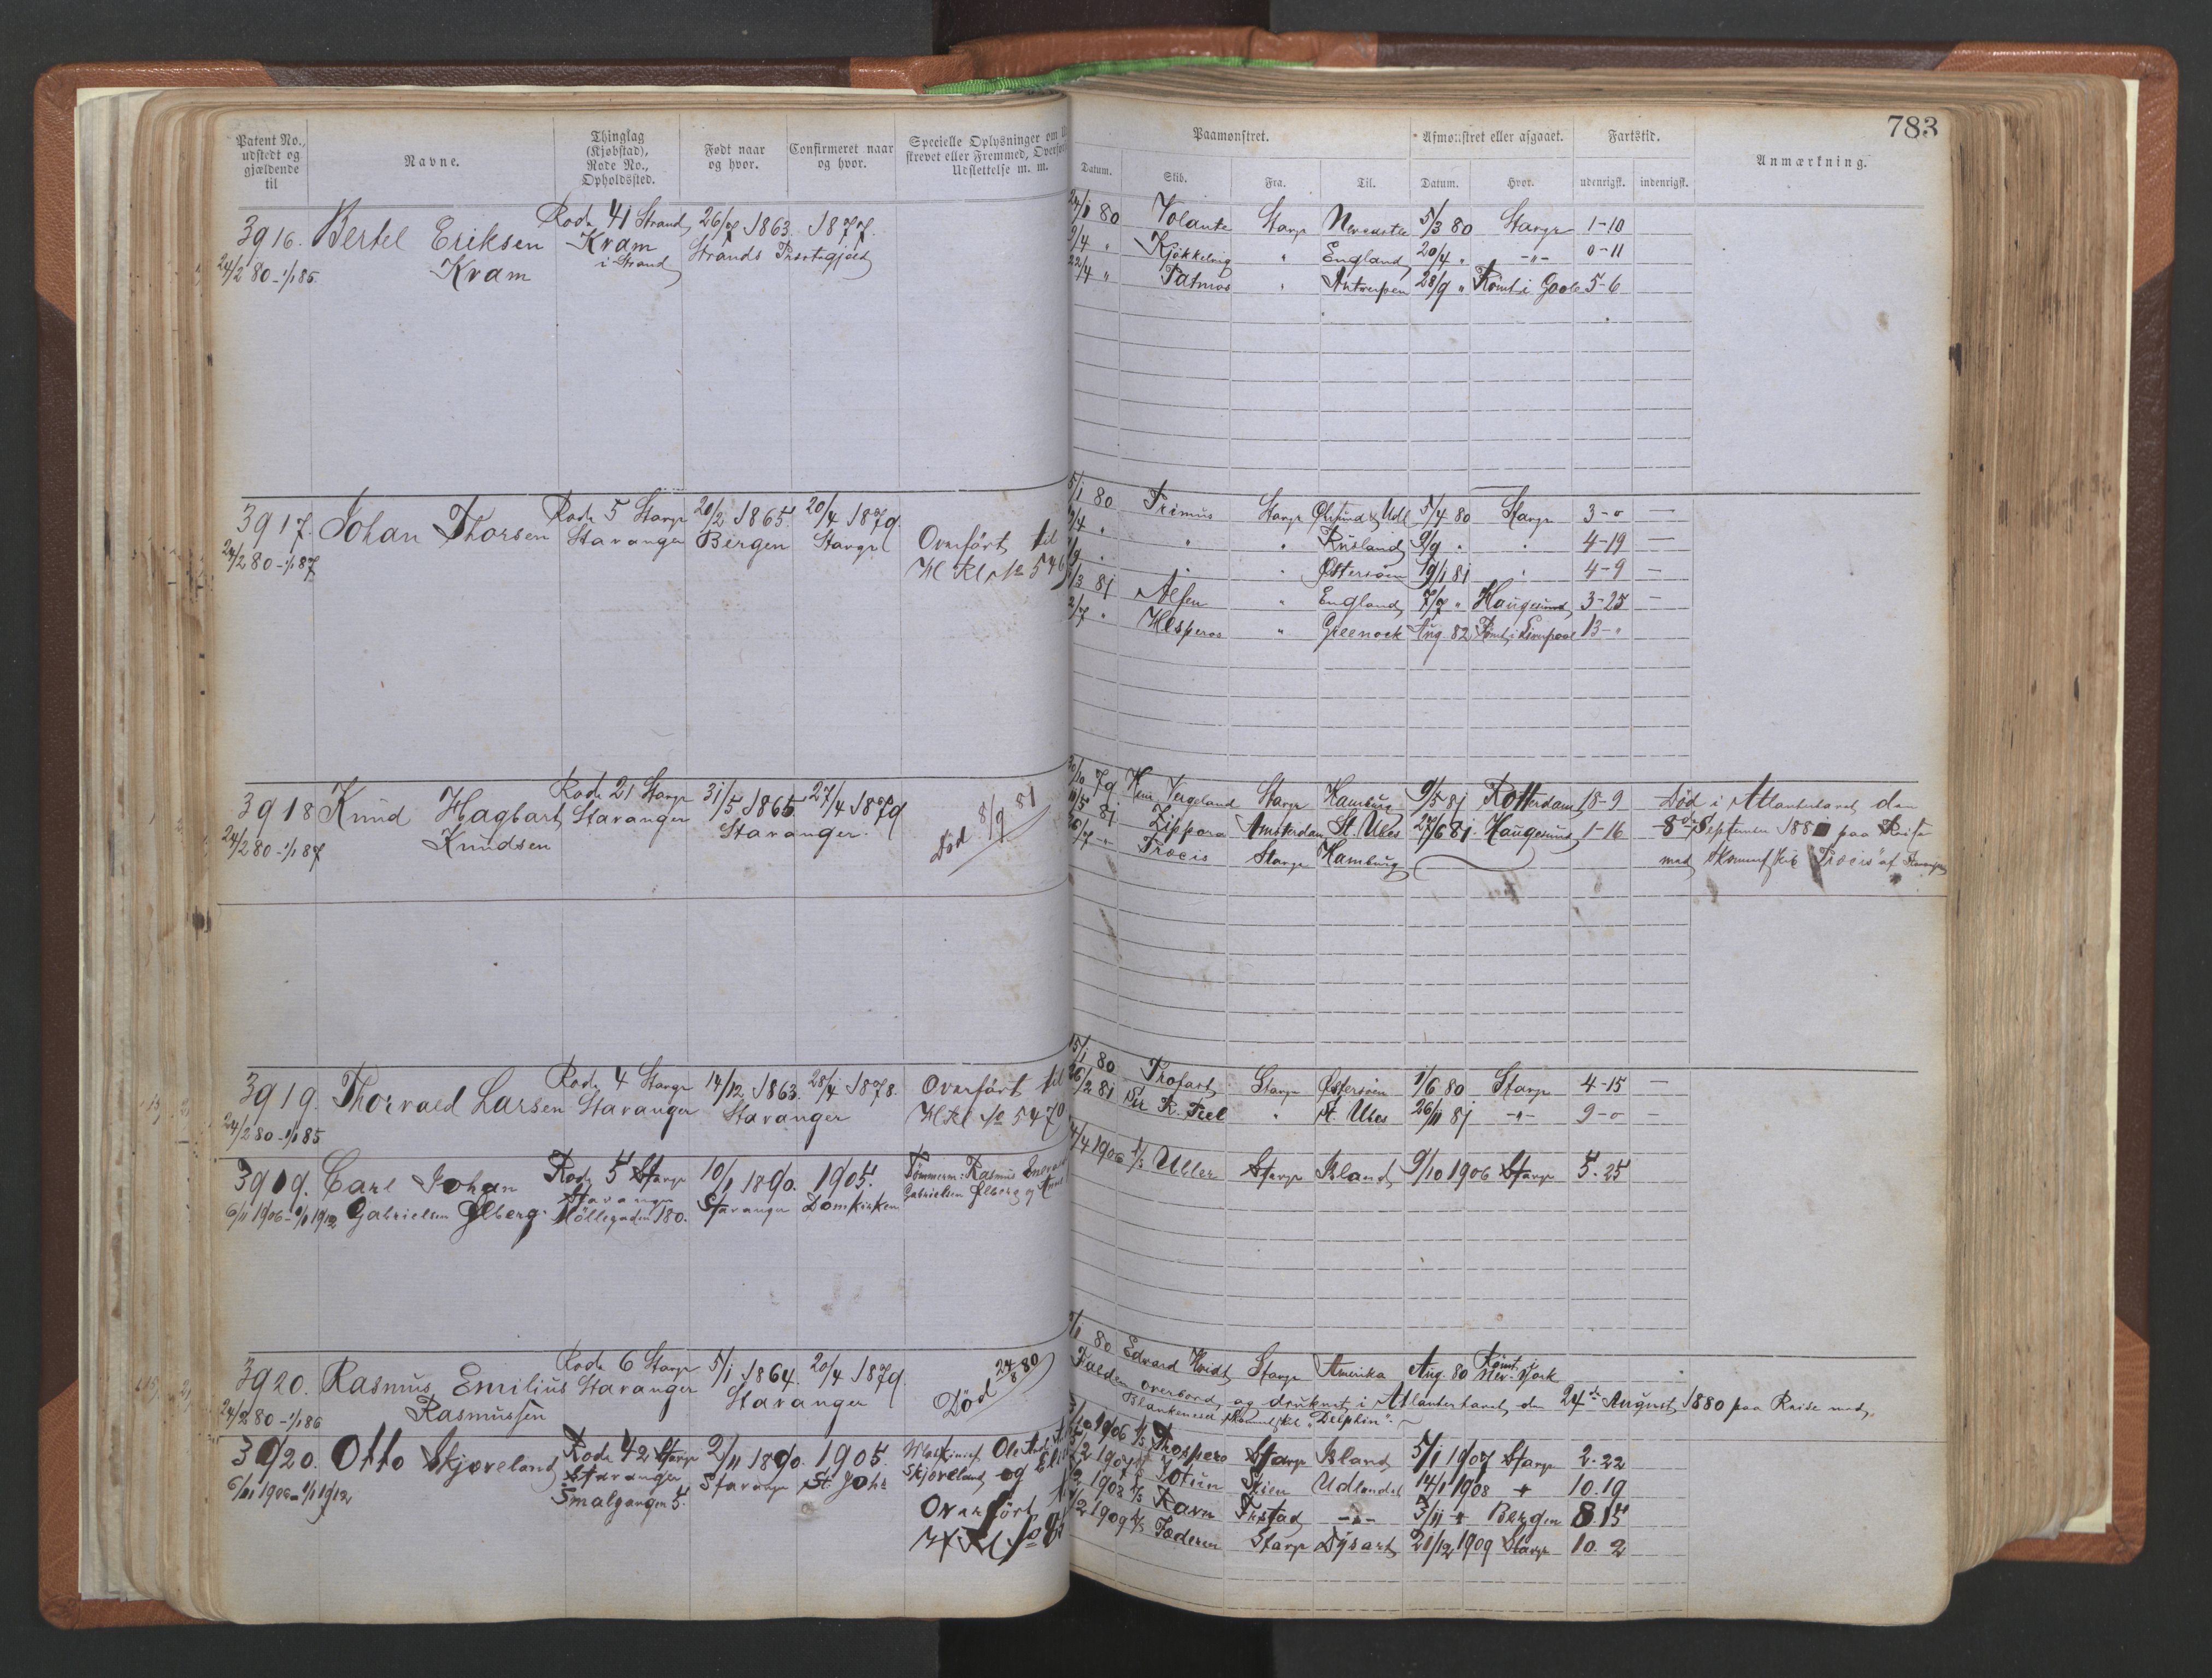 783
Patent No., udstedt og gjældende til
Navne.
Thinglag (Kjøbstad), Rode No., Opholdssted.
Født naar og hvor.
Confirmeret naar og hvor.
Specielle Oplysninger om
skrevet eller Fremmed,
Udslettelse m. m.
Paamønstret.
Afmønstret eller afgaaet.
Fartstid.
Anmærkning.
Datum. Skib. Fra. Til. Datum. Hvor. udenrigsk. indenrigsk.
3916. Bertel Eriksen Rode 41 Strand 26/7 1863. 1877.
24/2 80 - 1/1 85. Kvam Kvam Strands Præstegjeld
i Strand
24/1 80 Volante Stavgr Newcastle 5/3 80 Stavgr 1-10
9/4 " Kjøkkelvig " England 20/4 " -"- 0-11
22/4 " Patmos " Antwerpen 28/9 " Rømt i Goole 5-6
3917. Johan Thorsen Rode 5 Stavgr 20/2 1865. 20/4 1879
24/2 80 - 1/1 87 Stavanger Bergen Stavgr
Overført til
H Rl No 546
5/1 80 Primus Stavgr 5/4 80 Stavgr 3-0 —
/4 " " " Rusland 9/9 " " 4-19 —
/9 " " " Østersøen 19/1 81 " 4-9 —
/3 81 Alfen " England 7/7 " Haugesund 3-25 —
2/7 " Hesperos " Greenock Aug. 82 Rømt i Liverpool 13-"
3918 Knud Hagbart Rode 21 Stavgr 31/5 1865 27/4 1879
24/2 80 - 1/1 87 Knudsen Stavanger Stavanger.
Død 8/9 81
30/10 79 Henr Vergeland Stavgr Hamburg 9/5 81 Rotterdam 18-9
11/5 81 Zippora Amsterdam St. Ubes 27/6 81. Haugesund 1-16
/7 -"- Trocis Stavgr Hamburg
Død i Atlanterhavet den
8de September 188 paa Reise
med Skonnert skib "Trocis" af Stavanger
3919. Thorvald Larsen Rode 4 Stavgr 14/12 1863. 28/4 1878.
24/2 80 - 1/1 85 Stavanger Stavanger
Overført til
H Rl No 5470
15/1 80 Profast Stavgr Østersøen 1/6 80 Stavgr 4-15 —
26/2 81 Sir R. Peel " St. Ubes 26/11 81 -"- 9-0 —
3919. Carl Johan Rode 5 Stavgr 10/1 1890. 1905.
6/11 1906 - 1/1 1912 Gabrielsen Ølberg. Stavanger Stavanger Domkirken
Möllegaden 180.
Tømmerm: Rasmus
Gabrielsen Ølberg og
/4 1906 D/S Uller Stavgr Island 9/10 1906 Stavgr 5. 25
3920. Rasmus Emilius Rode 6 Stavgr 5/1 1864. 20/4 1879
24/2 80 - 1/1 86 Rasmussen Stavanger Stavanger
Død 24/8 80
/1 80 Edvard Hvidt Stavgr Amerika Aug. 80 Rømt i New-York
Falden overbord og druknet i Atlanterhavet den 24de August 1880 paa Reise med
Blankeneser Skonnert skib "Delphin".
3920. Otto Skjoreland Rode 42 Stavgr 2/11 1890. 1905.
6/11 1906 - 1/1 1912 Stavanger Stavanger St. Johs
Smalgangen 5.
Maskinist
Skjoreland og
Overført
H Rl No
/10 1906 D/S Prospero Stavgr Island 5/1 1907 Stavgr 2. 22
/2 1907 D/S Jotun Skien Udlandet 14/1 1908 10. 19
/2 1908 D/S Ravn Frstad -"- 3/11 Bergen 8. 15
/2 1909 D/S Jæderen Stavgr Dysart 21/12 1909 Stavgr 10. 2